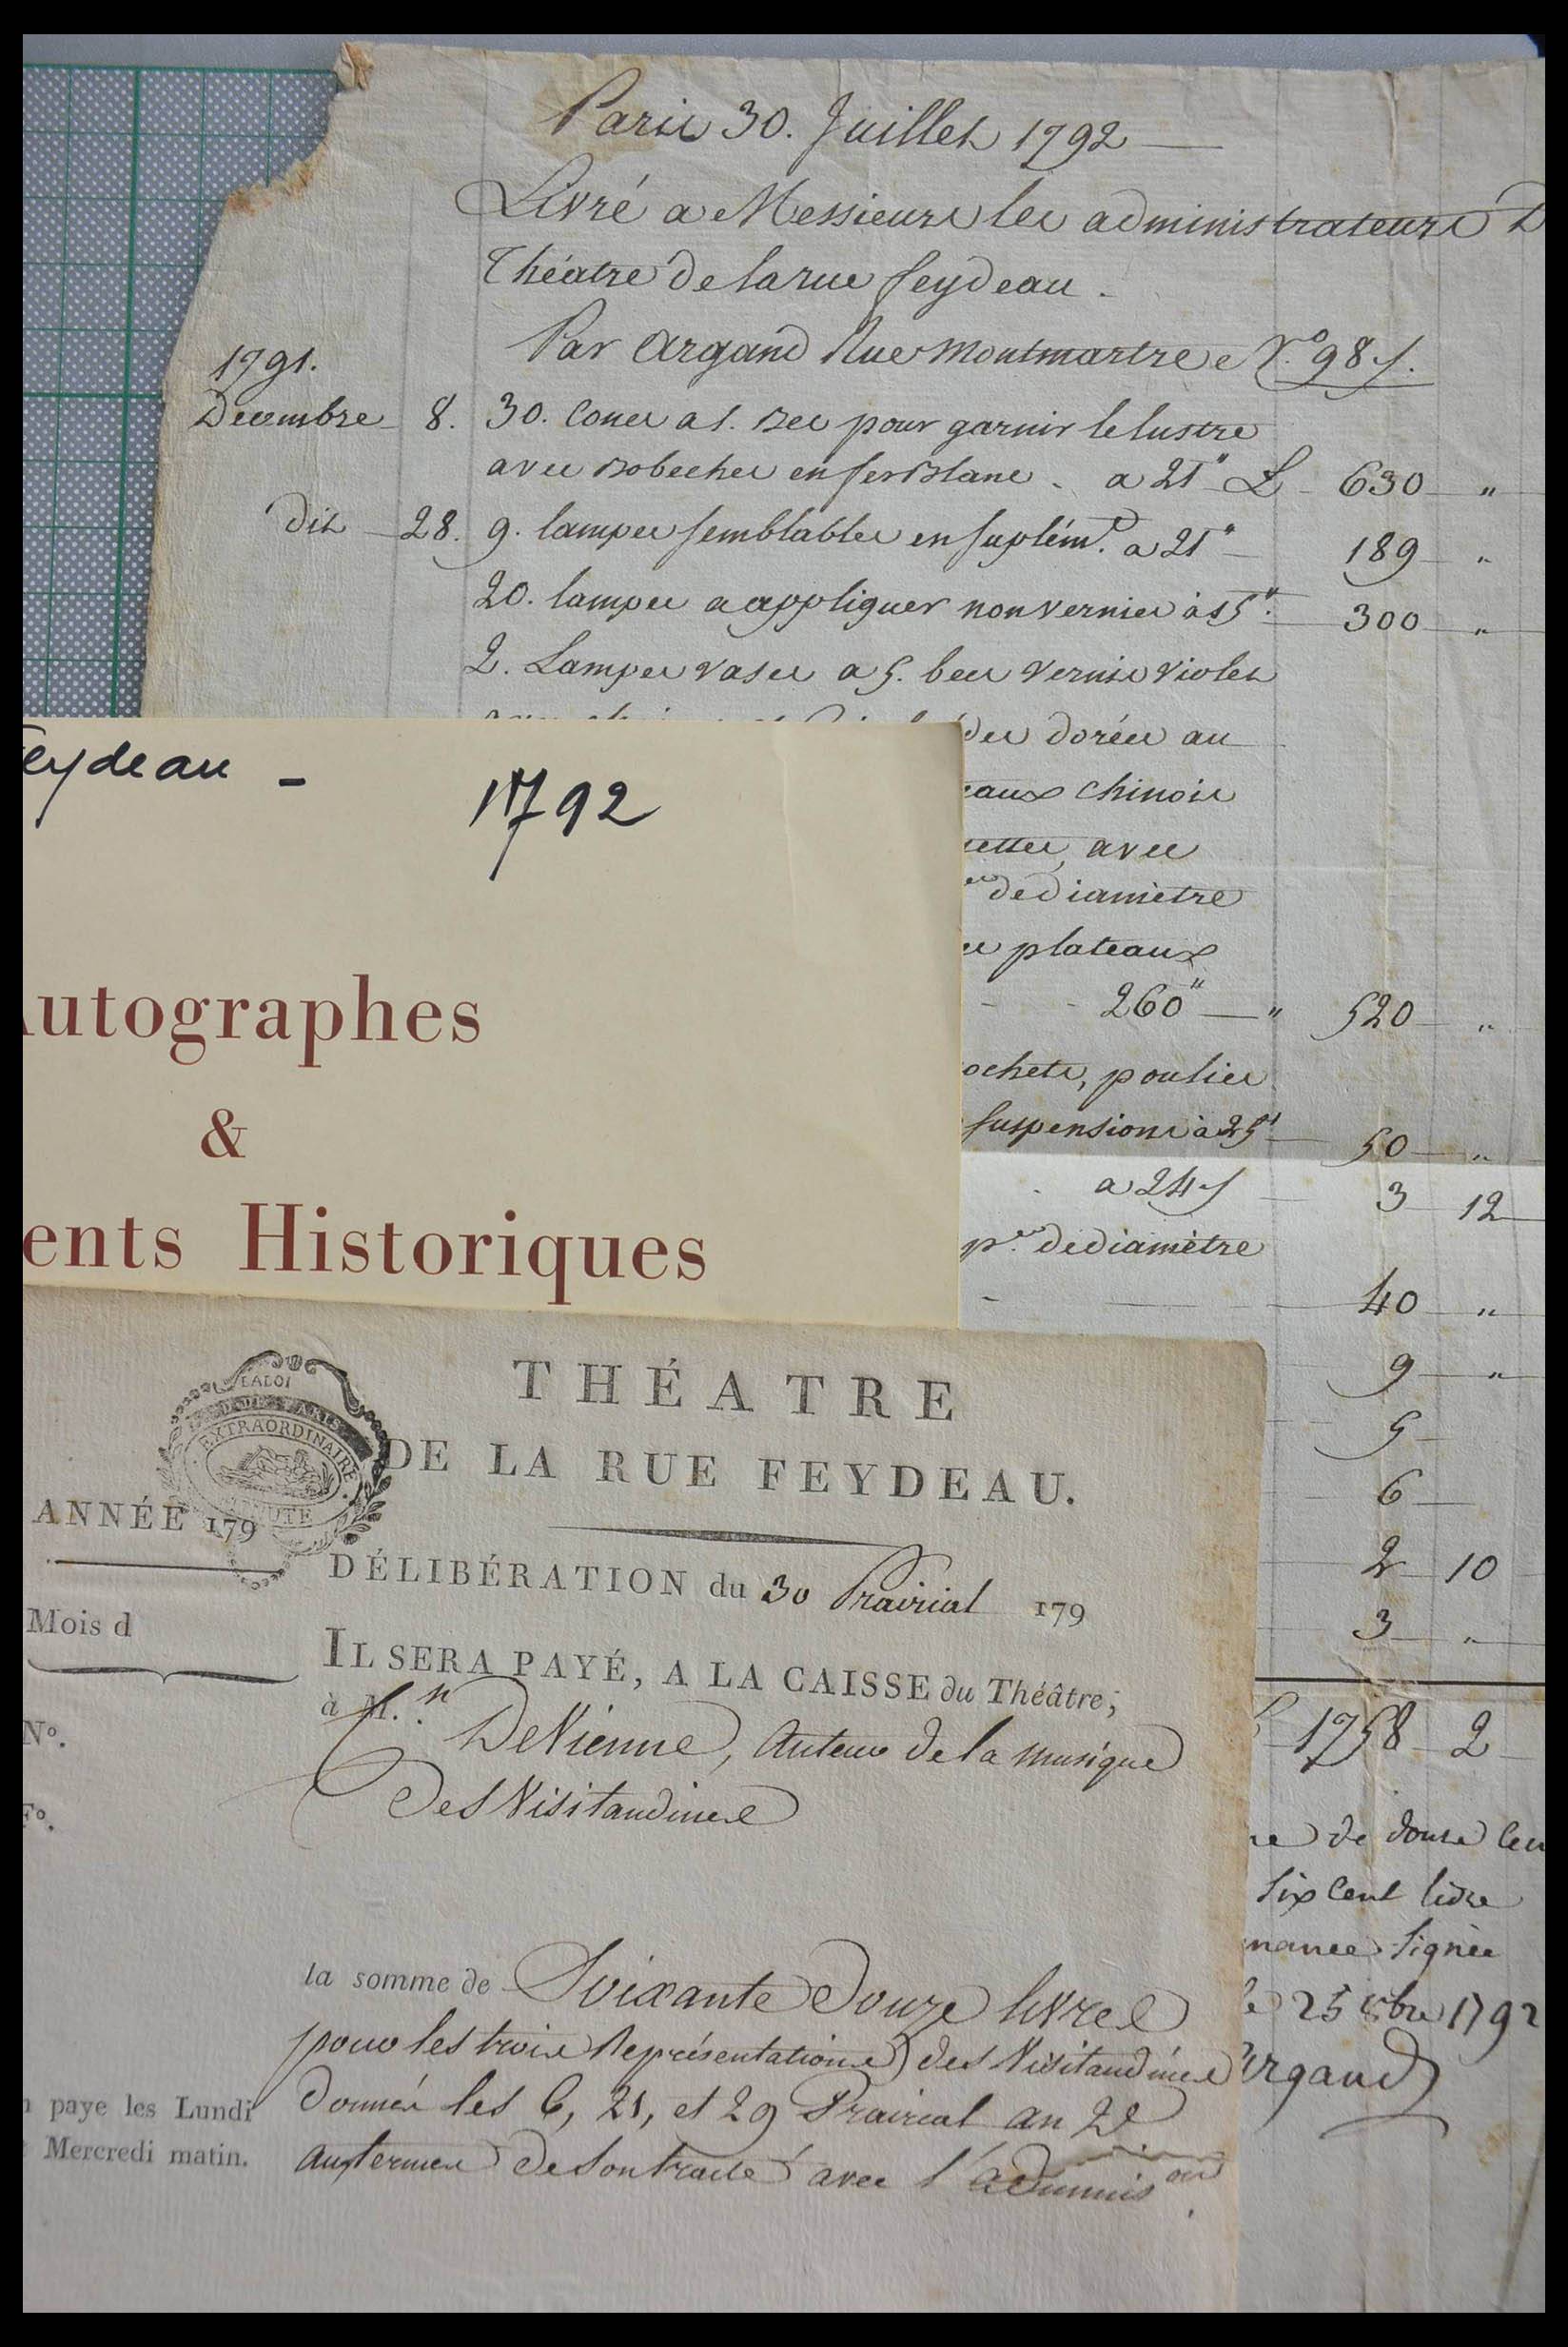 Paris 30. Juillet 1792
Livré a Messieurs les administrateurs D
Théatre de la rue feydeau.
Par Argand Rue Montmartre N.º 98
1791.
Decembre 8. 30. Cones a 1. Bec pour garnir le lustre
avec Bobeches en fer Blanc. a 21" L 630 "
dit 28. 9. lampes semblables en suplém.t a 21" 189 "
20. lampes a appliquer non vernies à 15". 300 "
2. Lampes vases a 5. becs vernis violet
des dorées au
eaux chinois
ettes, avec
de diamètre
plateaux
260" " 520 "
ochets, poulies
suspensions à 25" 50 "
a 24 s 3 12
p.ces de diamètre
40 "
9 "
5
6
2 10
3 "
1758 2
de douze Cen
Six Cent livre
nance Signée
le 25 8bre 1792
Argand
eydeau - 1792
utographes
&
ents Historiques
THÉATRE
DE LA RUE FEYDEAU.
LA LOI
D. DE PARIS
EXTRAORDINAIRE
MINUTE
ANNÉE 179
DÉLIBÉRATION du 30 Prairial 179
Mois d
IL SERA PAYÉ, A LA CAISSE du Théâtre,
à M.n DeVienne, Auteur de la musique
Des Visitandines
Nº.
Fº.
la somme de Soixante Douze livres
pour les trois Représentations des Visitandines
données les 6, 21, et 29 Prairial an 2e
aux termes de son traité avec l'adminis on.
n paye les Lundi
Mercredi matin.